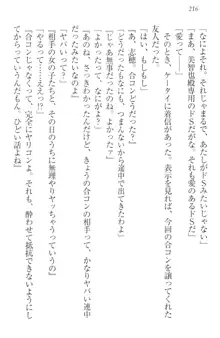 216
「なによそれ、それじゃ、あたしがドＳみたいじゃない」
「ドＳ――美智也殿専用のドＳだが、それも愛のあるドＳだ」
「愛って――」
言い返そうとしたとき、ケータイに着信があった。表示を見れば、今回の合コンに誘ってくれた友人だった。
「はい、もしもし」
「あ、志穂、合コンどうだった？」
「どうだったもなにも、つまらないから途中で出てきたわよ」
「じゃあ無事だったのね。よかった〜」
「よかったって、なにが？」
「あのね、さっきわかったんだけど、きょうの合コンの相手って、かなりヤバい連中
なのよ」
「ヤバいって？」
「相手の女の子たちと、その日のうちに無理やりヤッちゃうっていうの」
「やるって――ええっ!?」
「合コンっていうか、完全にヤリコンよね。それも、酔わせて抵抗できないようにし
てからだっていうから、ひどい話よね」